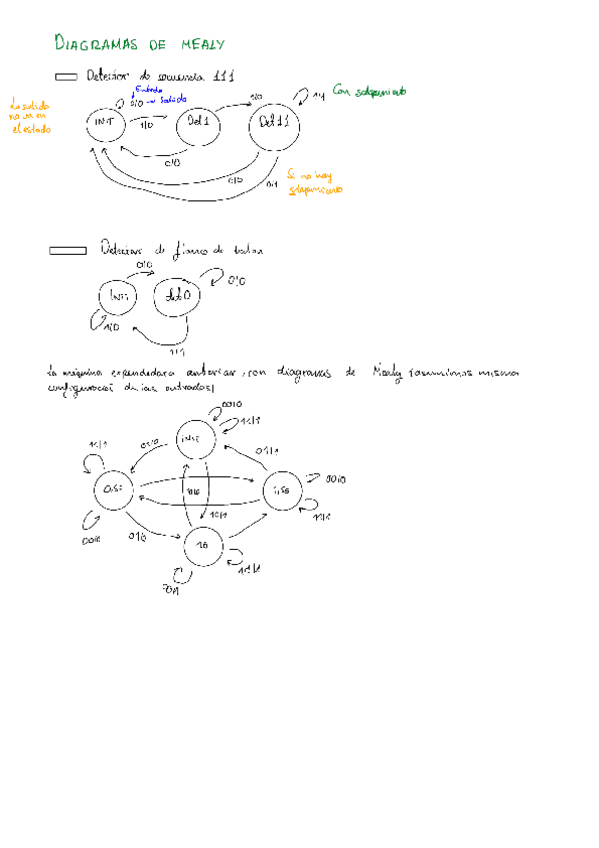 DIAGRAMAS DE MEALY
Detector de secuencia 111
Entrada
0/0 → Salida
La salida
no va en
el estado
INIT
1/0
Det 1
1/0
Det 11
1/1
Con solapamiento
0/0
0/0
0/1
Si no hay
solapamiento
Detector de flanco de
0/0
Init
Det 0
0/0
1/0
1/1
La máquina expendedora anterior, con diagramas de Mealy (asumimos misma
configuració de las entradas)
00/0
11/1
init
01/0
01/1
11/1
0.5€
1.5€
00/0
11/1
10/1
01/0
1€
11/1